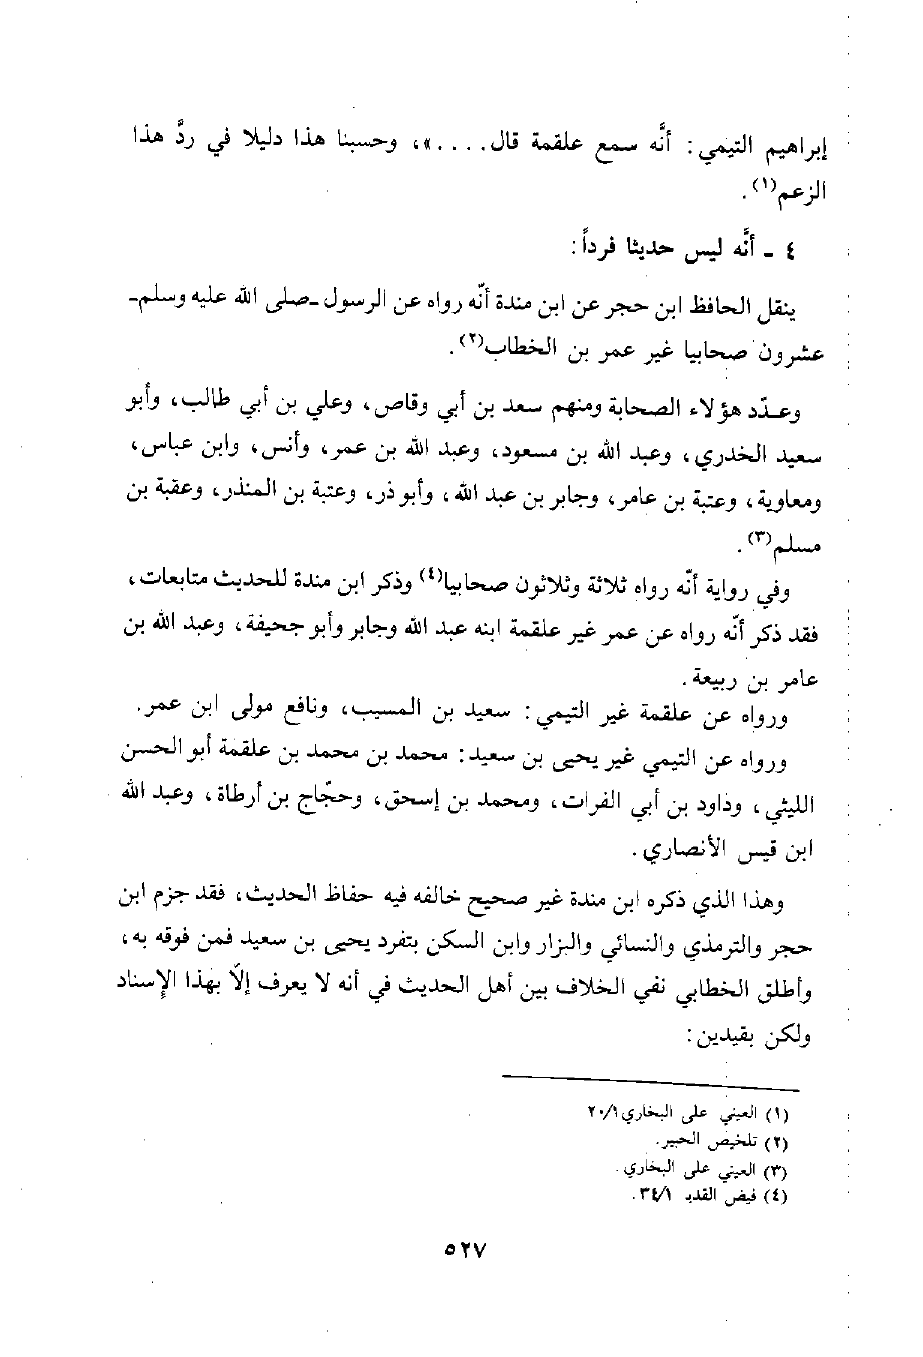 إبراهيم التيمي: أنَّه سمع علقمة قال....»، وحسبنا هذا دليلا في ردَّ هذا
الزعم(١).
٤ - أنَّه ليس حديثا فرداً:
ينقل الحافظ ابن حجر عن ابن مندة أنّه رواه عن الرسول -صلى الله عليه وسلم-
عشرون صحابيا غير عمر بن الخطاب(٢).
وعدّد هؤلاء الصحابة ومنهم سعد بن أبي وقاص، وعلي بن أبي طالب، وأبو
سعيد الخدري، وعبد الله بن مسعود، وعبد الله بن عمر، وأنس، وابن عباس،
ومعاوية، وعتبة بن عامر، وجابر بن عبد الله، وأبو ذر، وعتبة بن المنذر، وعقبة بن
مسلم(٣).
وفي رواية أنّه رواه ثلاثة وثلاثون صحابيا(٤) وذكر ابن مندة للحديث متابعات،
فقد ذكر أنّه رواه عن عمر غير علقمة ابنه عبد الله وجابر وأبو جحيفة، وعبد الله بن
عامر بن ربيعة.
ورواه عن علقمة غير التيمي: سعيد بن المسيب، ونافع مولى ابن عمر.
ورواه عن التيمي غير يحيى بن سعيد: محمد بن محمد بن علقمة أبو الحسن
الليثي، وداود بن أبي الفرات، ومحمد بن إسحق، وحجّاج بن أرطاة، وعبد الله
ابن قيس الأنصاري.
وهذا الذي ذكره ابن مندة غير صحيح خالفه فيه حفاظ الحديث، فقد جزم ابن
حجر والترمذي والنسائي والبزار وابن السكن بتفرد يحيى بن سعيد فمن فوقه به،
وأطلق الخطابي نفي الخلاف بين أهل الحديث في أنه لا يعرف إلّا بهذا الإسناد
ولكن بقيدين:
(١) العيني على البخاري ٢٠/١
(٢) تلخيص الحبير.
(٣) العيني على البخاري.
(٤) فيض القدير ٣٤/١.
٥٢٧